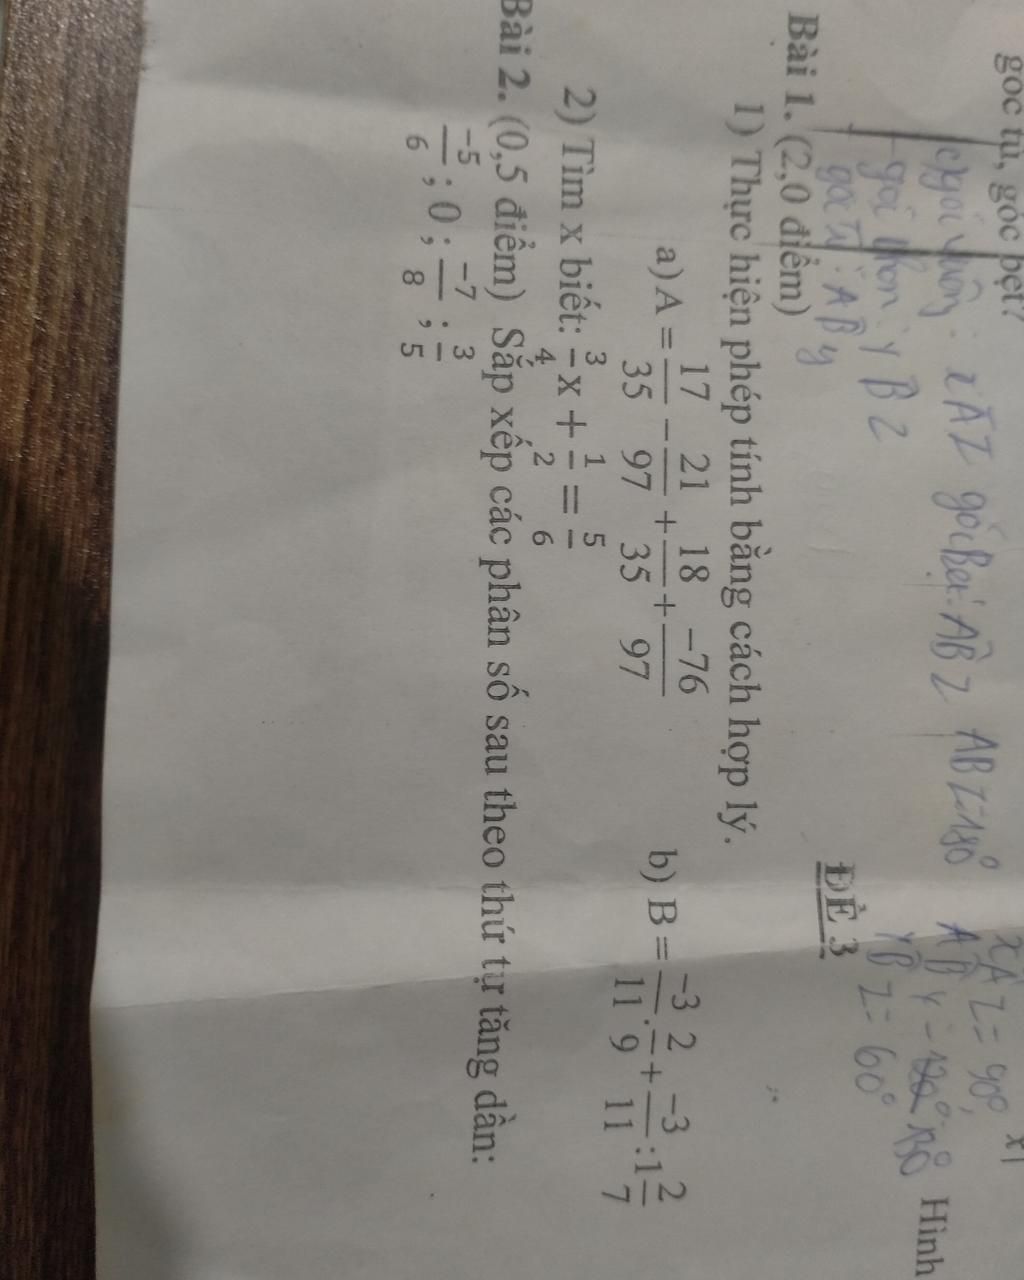 góc tù, góc bẹt?
x
góc vuông: xAz góc Bẹt: ABz ABz=180° xAz = 90°,
góc nhọn: yBz
góc Tù: ABy yBz = 60°
Hình
ĐỀ 3
Bài 1. (2,0 điểm)
1) Thực hiện phép tính bằng cách hợp lý.
a) A = 17/35 − 21/97 + 18/35 + −76/97 b) B = −3/11 . 2/9 + −3/11 : 1 2/7
2) Tìm x biết: 3/4 x + 1/2 = 5/6
Bài 2. (0,5 điểm) Sắp xếp các phân số sau theo thứ tự tăng dần:
−5/6 ; 0 ; −7/8 ; 3/5